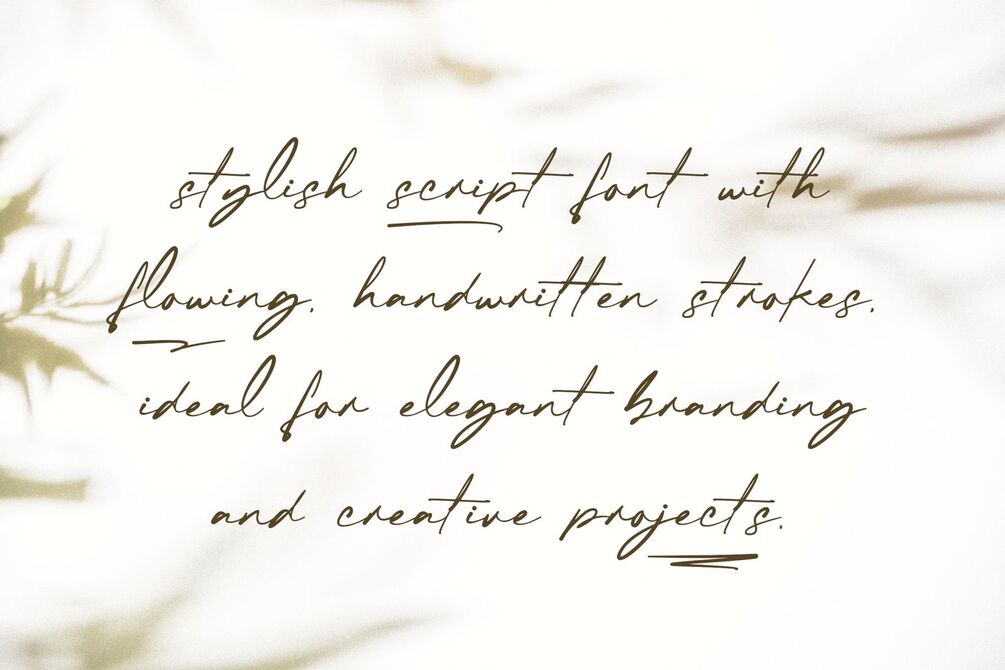 stylish script font with
flowing, handwritten strokes,
ideal for elegant branding
and creative projects.